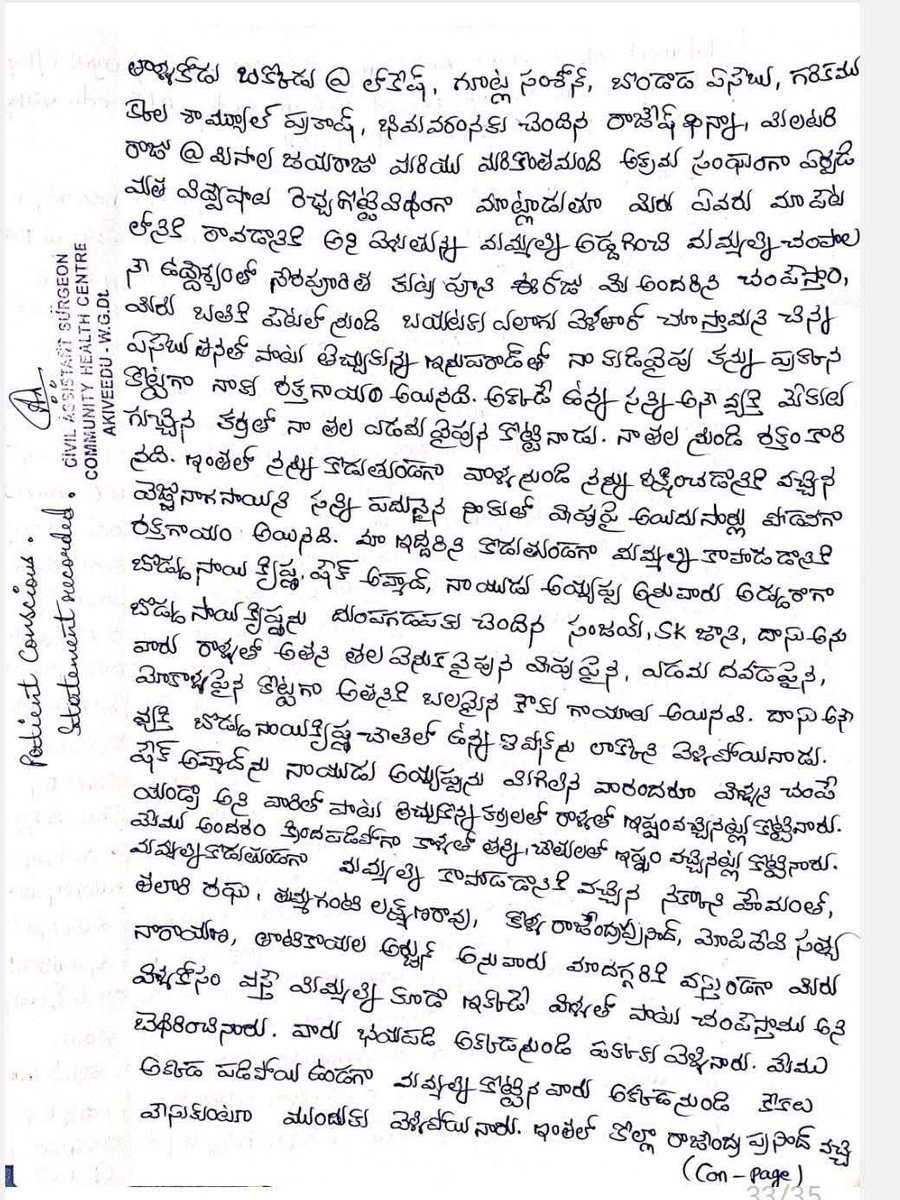 తాళ్ళకోడు బుక్కోడు @ లోకేష్, గూట్ల సంతోష్, బొండాడ ఏసేబు, గరికము
క్కల శామ్యూల్ ప్రకాష్, భీమవరంనకు చెందిన రాజేష్ ఖన్నా, మిలటరీ
రాజు @ మీసాల జయరాజు మరియు మరికొంతమంది అక్రమ సంఘంగా ఏర్పడి
మత విద్వేషాలు రెచ్చగొట్టేవిధంగా మాట్లాడుతూ మీరు ఎవరు మా పేట
లోనికి రావడానికి అని వెళుతున్న మమ్మల్ని అడ్డగించి మమ్మల్ని చంపాల
నే ఉద్దేశ్యంతో నేరపూరిత కుట్ర పూని ఈరోజు మీ అందరిని చంపేస్తాం,
మీరు బతికి పేటలో నుండి బయటకు ఎలాగు వెళతారో చూస్తామని చిన్న
ఏసేబు తనతో పాటు తెచ్చుకున్న ఇనుపరాడ్‌తో నా కుడివైపు కన్ను ప్రక్కన
కొట్టగా నాకు రక్తగాయం అయినది. అక్కడే ఉన్న సన్ని అనే వ్యక్తి మేకులు
గుచ్చిన కర్రతో నా తల ఎడమ వైపున కొట్టినాడు. నా తల నుండి రక్తం కారి
నది. ఇంతలో నన్ను కొడుతుండగా వాళ్ళనుండి నన్ను రక్షించడానికి వచ్చిన
నాగసాయిని సన్ని పదునైన చాకుతో వీపుపై అయిదుసార్లు పొడవగా
రక్తగాయం అయినది. మా ఇద్దరిని కొడుతుండగా మమ్మల్ని కాపాడడానికి
బొడ్డు సాయి క్రిష్ణ, షేక్ అహ్మద్, నాయుడు అయ్యప్ప అనువారు అడ్డురాగా
బొడ్డు సాయిక్రిష్ణను దుంపగడపకు చెందిన సంజయ్, SK జాని, దాసు అను
వారు రాళ్ళతో అతని తల వెనుక వైపున వీపు పైన, ఎడమ దవడపైన,
మోకాళ్ళపైన కొట్టగా అతనికి బలమైన కౌకు గాయాలు అయినవి. దాసు అనే
వ్యక్తి బొడ్డు సాయిక్రిష్ణ చేతిలో ఉన్న ఐ ఫోన్‌ను లాక్కొని వెళ్ళిపోయినాడు.
షేక్ అహ్మద్‌ను నాయుడు అయ్యప్పను మిగిలిన వారందరూ వీళ్ళని చంపే
యండ్రా అని వారితో పాటు తెచ్చుకొన్న కర్రలతో రాళ్ళతో ఇష్టంవచ్చినట్లు కొట్టినారు.
మేము అందరం క్రిందపడిపోగా కాళ్ళతో తన్ని, చేతులతో ఇష్టం వచ్చినట్లు కొట్టినారు.
మమ్మల్ని కొడుతుండగా మమ్మల్ని కాపాడడానికి వచ్చిన హేమంత్,
తలారి రఘు, తుమ్మగంటి లక్ష్మణరావు, కొళ్ళ రాజేంద్రప్రసాద్, మోపిదేవి సత్య
నారాయణ, తాటికాయల అర్జున్ అనువారు మాదగ్గరికి వస్తుండగా మీరు
వీళ్ళకోసం వస్తే మిమ్మల్ని కూడా ఇక్కడే వీళ్ళతో పాటు చంపేస్తాము అని
బెదిరించినారు. వారు భయపడి అక్కడనుండి పక్కకు వెళ్ళినారు. మేము
అక్కడ పడిపోయి ఉండగా మమ్మల్ని కొట్టిన వారు అక్కడనుండి కేకలు
వేసుకుంటూ ముందుకు వెళ్ళిపోయినారు. ఇంతలో కొల్లా రాజేంద్ర ప్రసాద్ వచ్చి
(Con - page)
33/35
Patient Conscious.
Statement recorded.
CIVIL ASSISTANT SURGEON
COMMUNITY HEALTH CENTRE
AKIVEEDU - W.G.Dt.